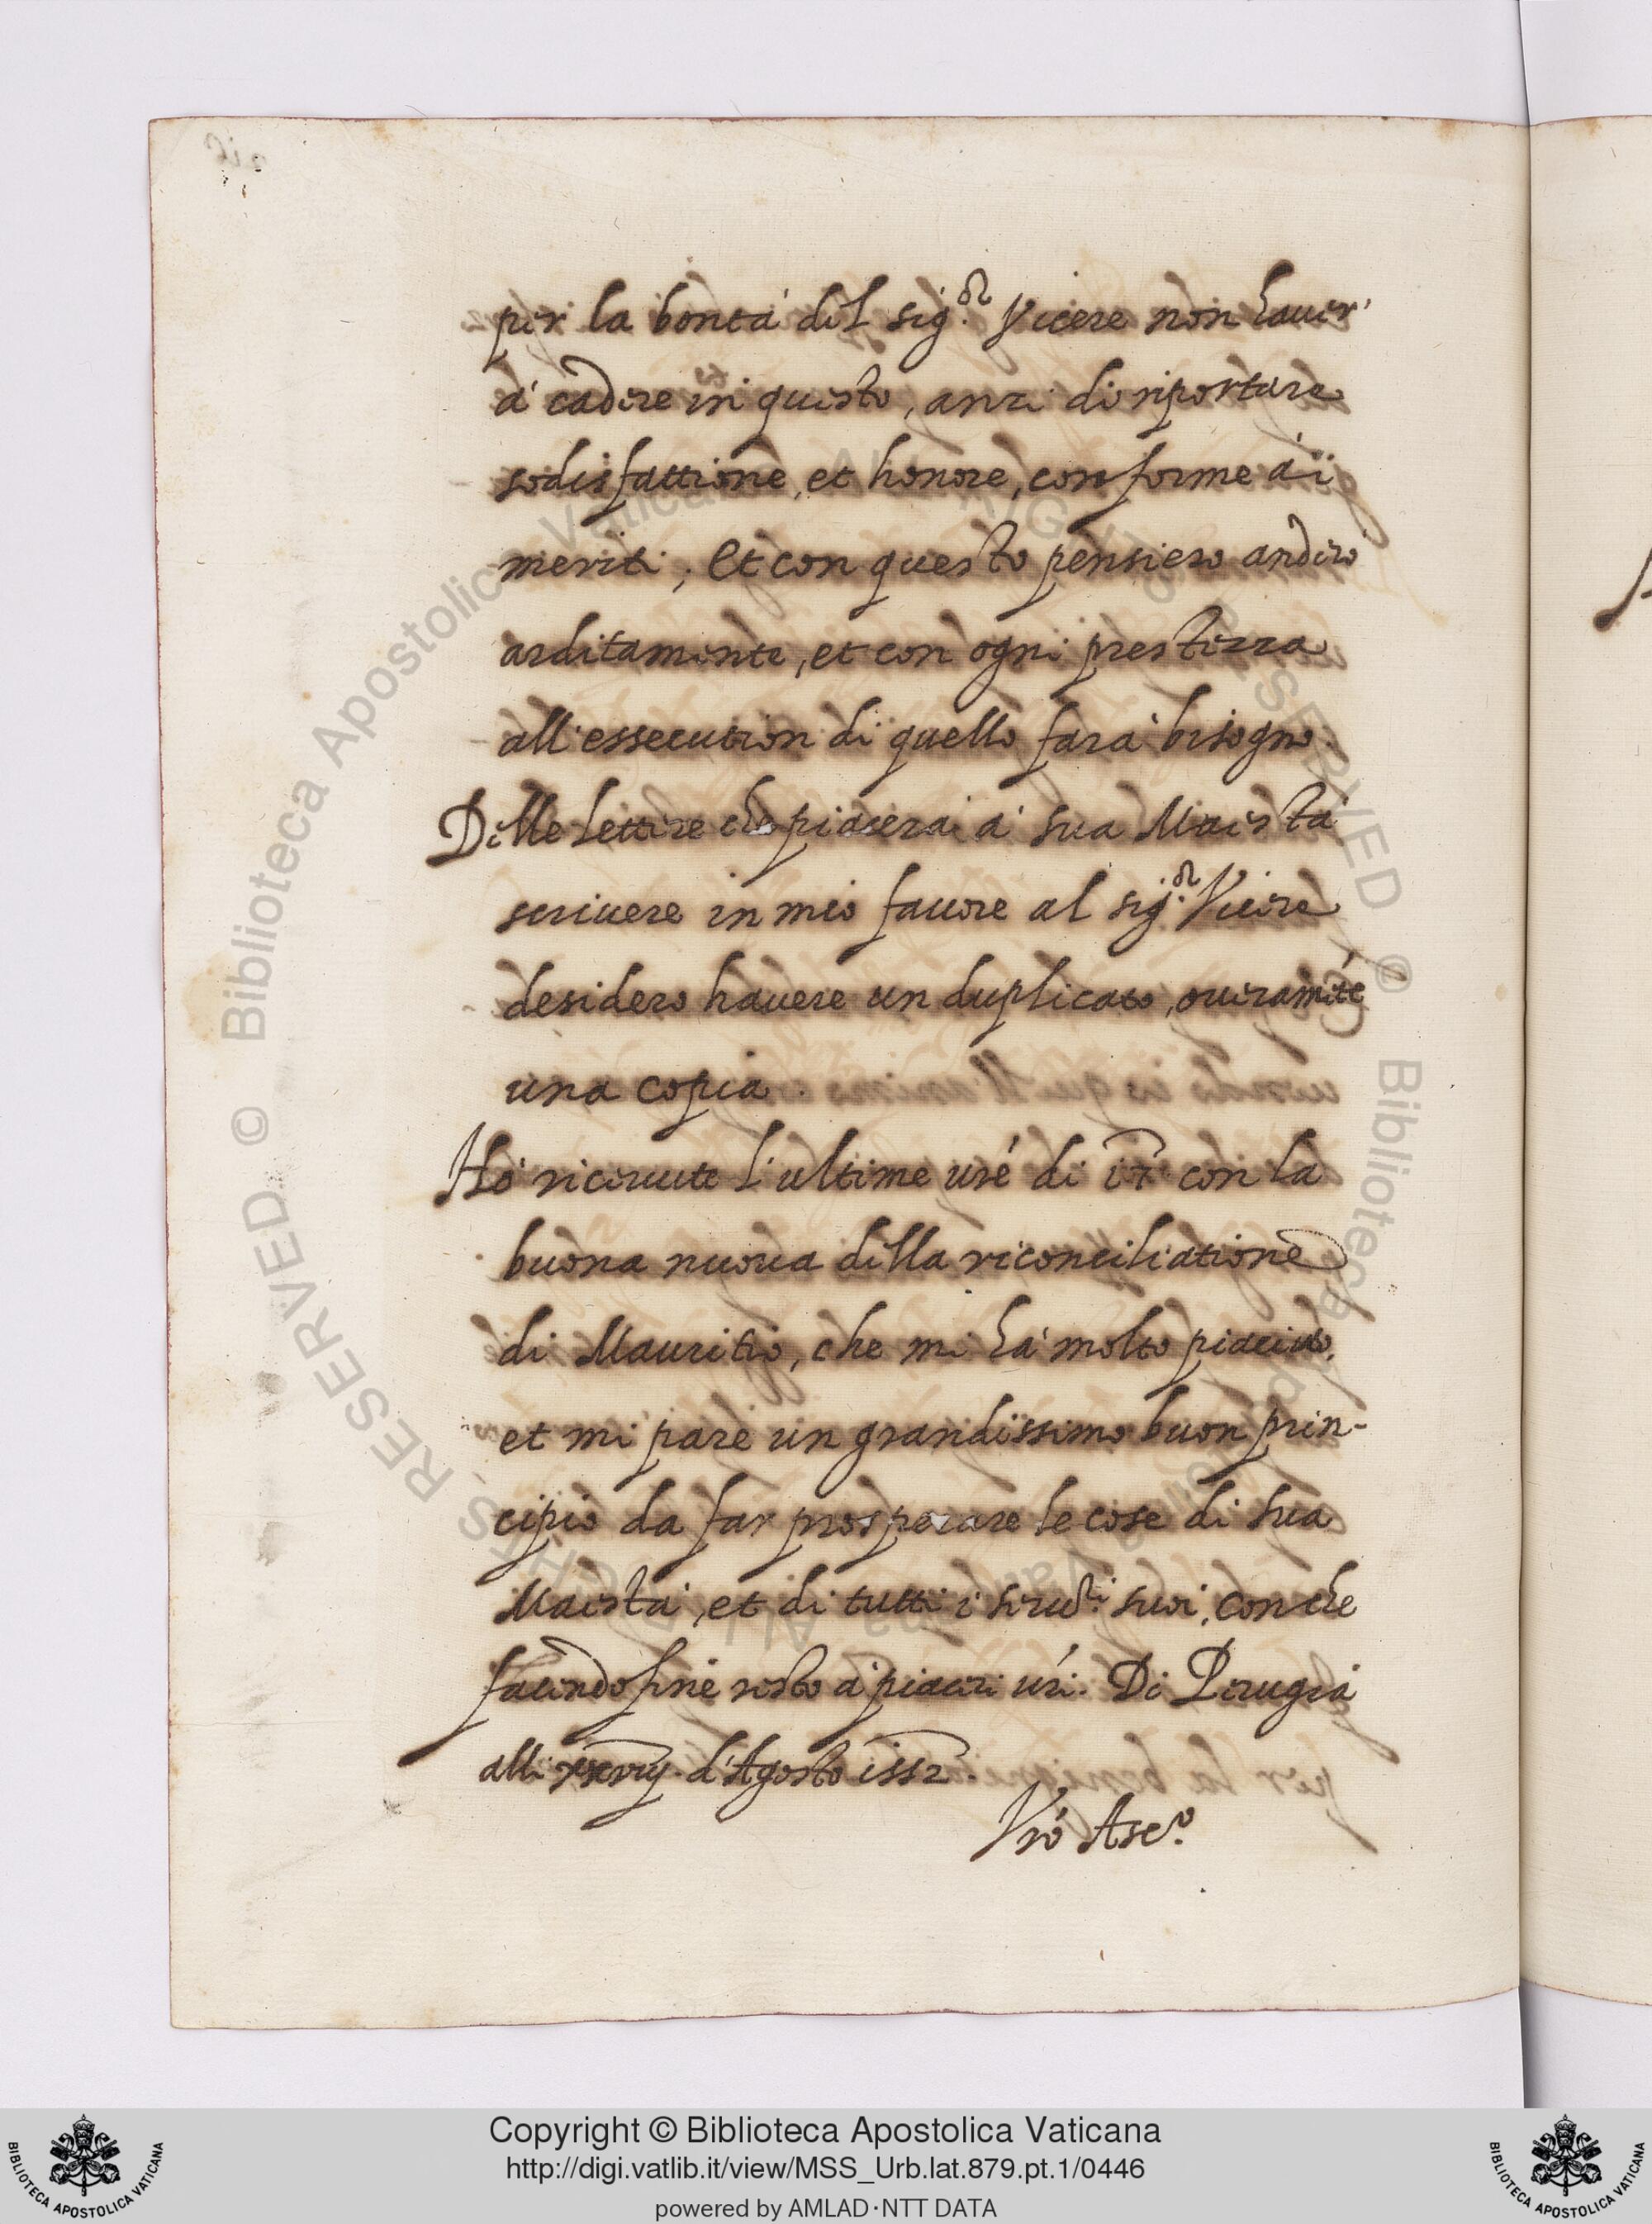 per la bontá del sig.or Vicere non haver
á cadere in questo, anzi di riportare
sodisfattione, et honore, conforme á i
meriti; Et con questo pensiero andero
arditamente, et con ogni prestezza
all'essecution di quello fara bisogno.
Delle lettere che piacerai á sua Maestá
scrivere in mio favore al sig.or Vicere
desidero havere un duplicato, overamẽte
una copia.
Hó ricevute l'ultime vré di i7 con la
buona nuova della riconciliatione
di Mauritio, che mi há molto piaciuto,
et mi pare un grandissimo buon prin-
cipio da far prosperare le cose di sua
Maestá, et di tutti i servd.i suoi. Con che
facendo fine resto á piaceri vri. Di Perugia
alli d'Agosto i552.
Vró Asc.o
Copyright © Biblioteca Apostolica Vaticana
http://digi.vatlib.it/view/MSS_Urb.lat.879.pt.1/0446
powered by AMLAD·NTT DATA
BIBLIOTECA APOSTOLICA VATICANA
BIBLIOTECA APOSTOLICA VATICANA